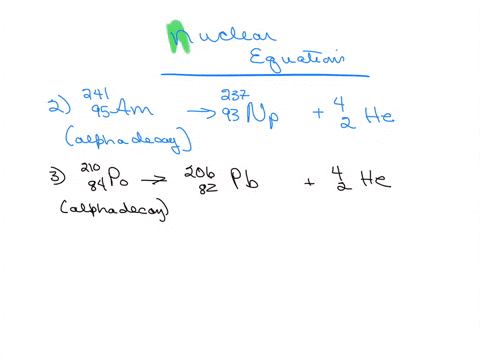 Nuclear
Equations
2) ²⁴¹₉₅Am → ²³⁷₉₃Np + ⁴₂He
(alpha decay)
3) ²¹⁰₈₄Po → ²⁰⁶₈₂Pb + ⁴₂He
(alpha decay)